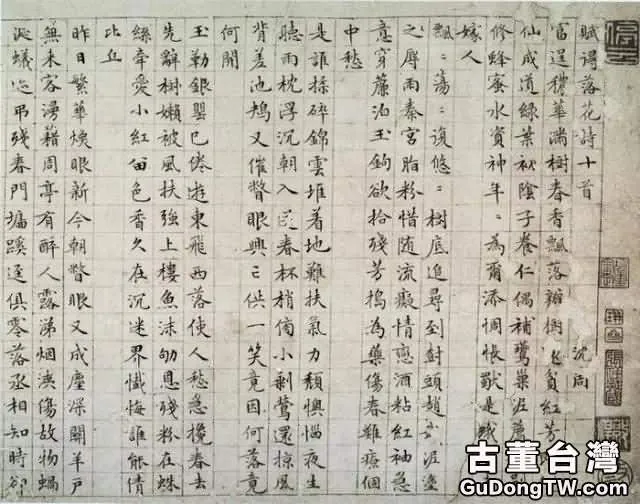 賦得落花詩十首
沈周
富逞穠華滿樹春香飄落瓣樹還貧紅芳
仙成道綠葉初陰子養仁偶補鶯巢泥薦
修蜂蜜水資神年〻為爾添惆悵獃是蛾
嫁人
飄〻蕩〻復悠〻樹底追尋到樹頭趙武泥塗
之辱雨秦宮脂粉惜随流癡情戀酒粘紅袖急
意穿簾泊玉鉤欲拾殘芳搗為藥傷春難療個
中愁
是誰揉碎錦雲堆着地難扶氣力頹懊惱夜生
聽雨枕浮沉朝入送春杯梢傭小剩鶯還掠風
背差池鴂又催瞥眼興亡供一笑竟因何落竟
何開
玉勒銀罌已倦遊東飛西落使人愁急攙春去
先辭樹懶被風扶強上樓魚沫劬恩殘粉在蛛
絲牽愛小紅留色香久在沉迷界懺悔誰能倩
比丘
昨日繁華煥眼新今朝瞥眼又成塵深關羊戶
無来客漫藉周亭有醉人露涕烟洟傷故物蝸
涎蟻迹弔殘春門墻蹊逕俱零落丞相知時卻
古董台灣
GuDongTW.com